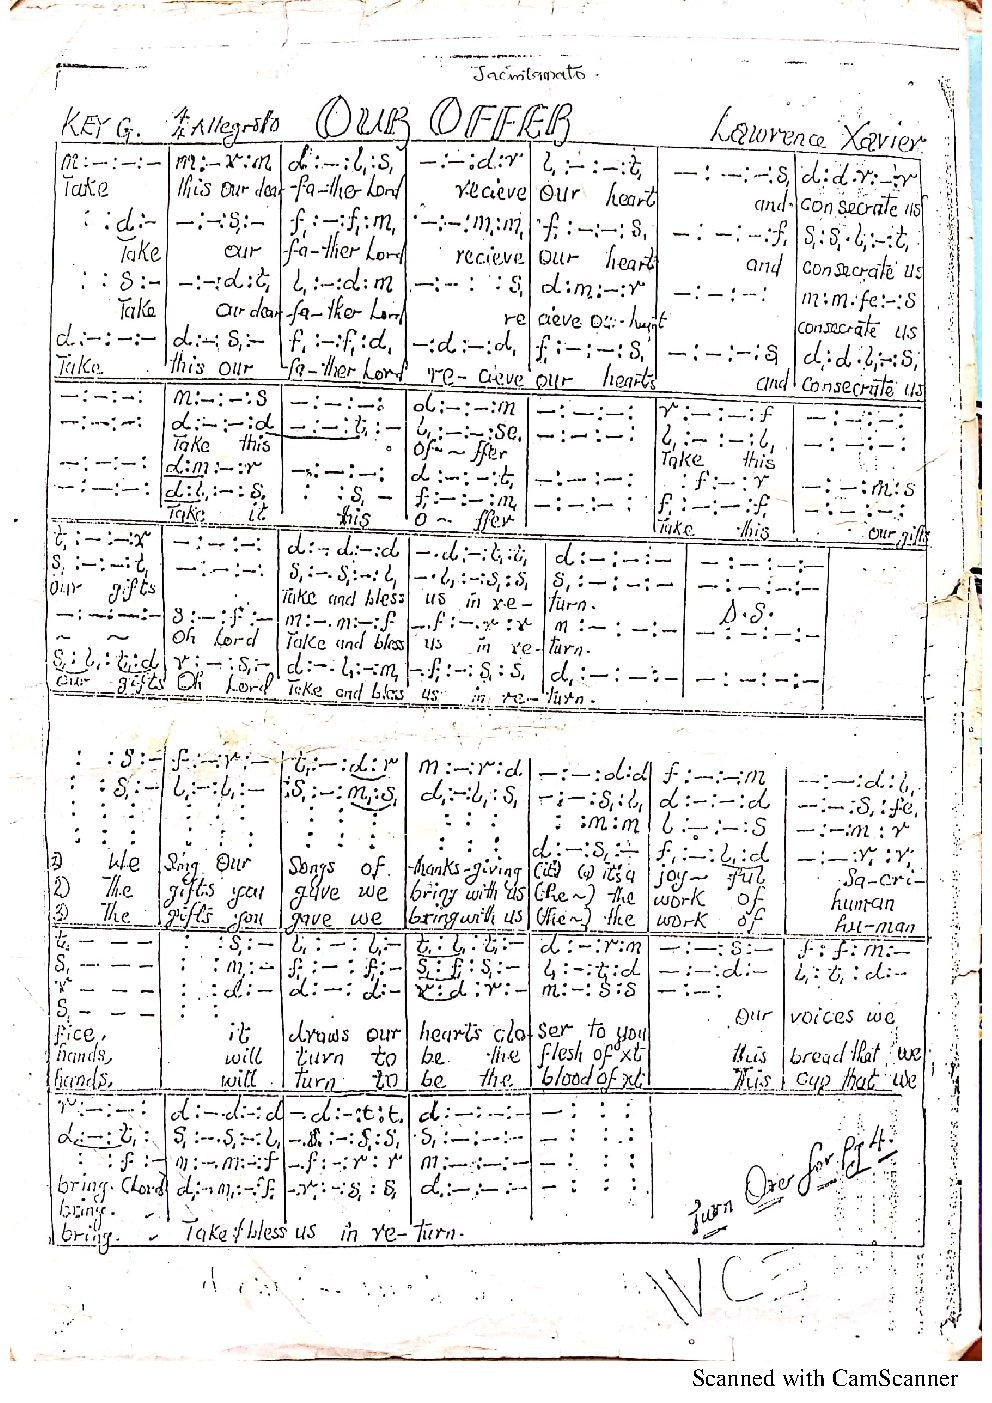 KEY G. 4/4 Allegrato OUR OFFER Lawrence Xavier
m:-:-:- m:-:r:m d:-:l,:s, -:-:d:r l,:-:-:t, -:-:-:s, d:d:r:-:r
Take this our dear fa-ther Lord recieve our heart and consecrate us
: :d:- -:-:s,:- f,:-:f,:m, -:-:m,:m, f,:-:-:s, -:-:-:f, s,:s,.l,:-:t,
Take our fa-ther Lord recieve our heart and consecrate us
: :s:- -:-:d:t, l,:-:d:m -:-: :s, d:m:-:r -:-:-: m:m.fe:-:s
Take our dear fa-ther Lord re cieve our heart consecrate us
d:-:-:- d:-:s,:- f,:-:f,:d, -:d:-:d, f,:-:-:s, -:-:-:s, d:d.l,:-:s,
Take this our fa-ther Lord re-cieve our hearts and consecrate us
-:-:-:- m:-:-:s -:-:-:- d:-:-:m -:-:-:- r:-:-:f -:-:-:-
-:-:-:- d:-:-:d -:-:t,:- l,:-:-:se, -:-:-:- l,:-:-:l, -:-:-:-
Take this of~ffer Take this
-:-:-:- d:m:-:r -:-:-:- d:-:-:t, -:-:-:- :f:-:r -:-:m:s
-:-:-:- d:l,:-:s, : :s,:- f,:-:-:m, -:-:-:- f,:-:-:f, -:-:-:-
Take it this o~ffer Take this our gifts
t,:-:-:r -:-:-:- d:-.d:-:d -.d:-:t,:t, d:-:-:- -:-:-:-
s,:-:-:t, -:-:-:- s,:-.s,:-:l, -.l,:-:s,:s, s,:-:-:- -:-:-:-
our gifts Take and bless us in re-turn. D.S.
-:-:-:- s:-:f:- m:-.m:-:f -.f:-:r:r m:-:-:- -:-:-:-
~ ~ Oh Lord Take and bless us in re-turn.
s,:l,:t,:d r:-:s,:- d:-.l,:-:m, -.f,:-:s,:s, d,:-:-:- -:-:-:-
our gifts Oh Lord Take and bless us in re-turn.
: :s:- f:-:r:- t,:-:d:r m:-:r:d -:-:d:d f:-:-:m -:-:d:l,
: :s,:- l,:-:l,:- s,:-:m,:s, d,:-:l,:s, -:-:s,:l, d:-:-:d -:-:s,:fe,
: : : : : : : : : : : : : :m:m l:-:-:s -:-:m:r
: : : : : : : : : : : : d:-:s,:- f,:-:l,:d -:-:r,:r,
1) We Sing Our Songs of thanks-giving (it) (s) it's a joy~ful Sa-cri-
2) The gifts you gave we bring with us (he~) the work of human
3) The gifts you gave we bring with us (the~) the work of hu-man
t, - - - : :s,:- l,:-:l,:- t,:l,:t,:- d:-:r:m -:-:s:- f:f:m:-
s, - - - : :m,:- f,:-:f,:- s,:f,:s,:- l,:-:t,:d -:-:d:- l,:t,:d:-
r - - - : :d:- d:-:d:- r:d:r:- m:-:s:s -:-:-:
s, - - - : :
fice, it draws our hearts clo-ser to you Our voices we
hands, will turn to be the flesh of xt this bread that we
hands, will turn to be the blood of xt This cup that we
r:-:-:- d:-.d:-:d -.d:-:t,:t, d:-:-:- -: : :
d:-:t,: s,:-.s,:-:l, -.s,:-:s,:s, s,:-:-:- -: : :
: :f:- m:-.m:-:f -.f:-:r:r m:-:-:- -: : :
bring (Lord) d:-.m,:-:f, -.r,:-:s,:s, d,:-:-:- -: : :
bring.
bring. Take & bless us in re-turn.
Turn Over for Pg 4.
Scanned with CamScanner